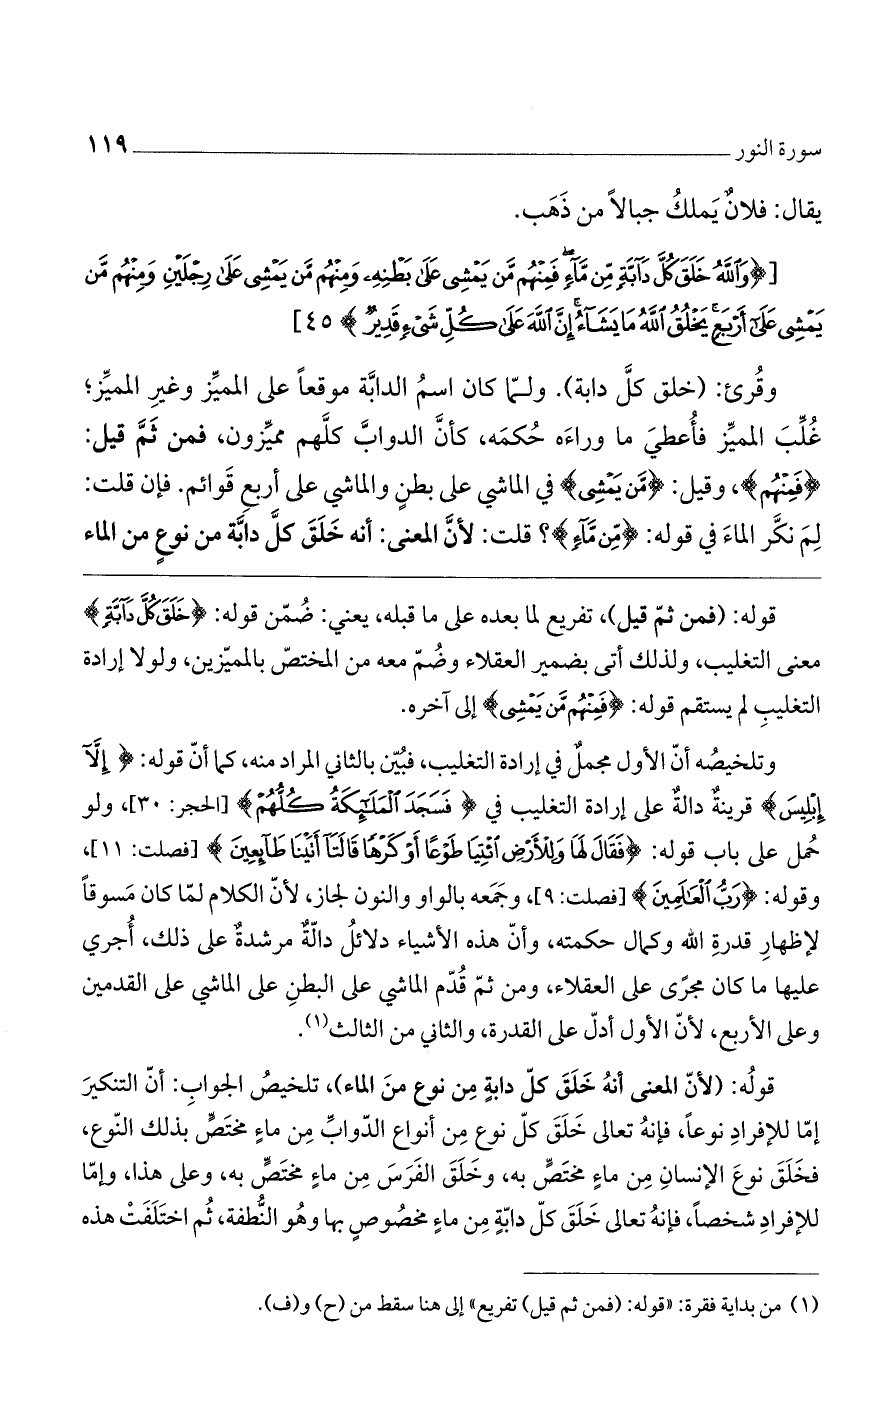 سورة النور ١١٩
يقال: فلانٌ يَملكُ جبالاً من ذَهَب.
[﴿وَٱللَّهُ خَلَقَ كُلَّ دَآبَّةٍ مِّن مَّآءٍ ۖ فَمِنْهُم مَّن يَمْشِى عَلَىٰ بَطْنِهِۦ وَمِنْهُم مَّن يَمْشِى عَلَىٰ رِجْلَيْنِ وَمِنْهُم مَّن
يَمْشِى عَلَىٰٓ أَرْبَعٍ ۚ يَخْلُقُ ٱللَّهُ مَا يَشَآءُ ۚ إِنَّ ٱللَّهَ عَلَىٰ كُلِّ شَىْءٍ قَدِيرٌ﴾ ٤٥]
وقُرئ: (خلق كلَّ دابة). ولـمّا كان اسمُ الدابَّة موقعاً على المميِّز وغيرِ المميِّز؛
غُلِّبَ المميِّز فأُعطيَ ما وراءَه حُكمَه، كأنَّ الدوابَّ كلَّهم مميِّزون، فمن ثَمَّ قيل:
﴿فَمِنْهُم﴾، وقيل: ﴿مَّن يَمْشِى﴾ في الماشي على بطنٍ والماشي على أربعِ قَوائم. فإن قلت:
لِمَ نكَّر الماءَ في قوله: ﴿مِّن مَّآءٍ﴾؟ قلت: لأنَّ المعنى: أنه خَلَقَ كلَّ دابَّة من نوعٍ من الماء
قوله: (فمن ثمّ قيل)، تفريع لما بعده على ما قبله، يعني: ضُمّن قوله: ﴿خَلَقَ كُلَّ دَآبَّةٍ﴾
معنى التغليب، ولذلك أتى بضمير العقلاء وضُمّ معه من المختصّ بالمميّزين، ولولا إرادة
التغليبِ لم يستقم قوله: ﴿فَمِنْهُم مَّن يَمْشِى﴾ إلى آخره.
وتلخيصُه أنّ الأول مجملٌ في إرادة التغليب، فبُيّن بالثاني المراد منه، كما أنّ قوله: ﴿إِلَّآ
إِبْلِيسَ﴾ قرينةٌ دالةٌ على إرادة التغليب في ﴿فَسَجَدَ ٱلْمَلَـٰٓئِكَةُ كُلُّهُمْ﴾ [الحجر: ٣٠]، ولو
حُمل على باب قوله: ﴿فَقَالَ لَهَا وَلِلْأَرْضِ ٱئْتِيَا طَوْعًا أَوْ كَرْهًا قَالَتَآ أَتَيْنَا طَآئِعِينَ﴾ [فصلت: ١١]،
وقوله: ﴿رَبُّ ٱلْعَـٰلَمِينَ﴾ [فصلت: ٩]، وجَمَعه بالواو والنون لجاز، لأنّ الكلام لمّا كان مَسوقاً
لإظهارِ قدرةِ الله وكمال حكمته، وأنّ هذه الأشياء دلائلُ دالّةٌ مرشدةٌ على ذلك، أُجري
عليها ما كان مجرًى على العقلاء، ومن ثمّ قُدّم الماشي على البطنِ على الماشي على القدمين
وعلى الأربع، لأنّ الأول أدلّ على القدرة، والثاني من الثالث(١).
قولُه: (لأنّ المعنى أنهُ خَلَقَ كلّ دابةٍ مِن نوع منَ الماء)، تلخيصُ الجوابِ: أنّ التنكيرَ
إمّا للإفرادِ نوعاً، فإنهُ تعالى خَلَقَ كلّ نوع مِن أنواع الدّوابِّ مِن ماءٍ مختَصٍّ بذلك النّوع،
فخَلَقَ نوعَ الإنسانِ مِن ماءٍ مختَصٍّ به، وخَلَقَ الفَرَسَ مِن ماءٍ مختَصٍّ به، وعلى هذا، وإمّا
للإفرادِ شخصاً، فإنهُ تعالى خَلَقَ كلّ دابّةٍ مِن ماءٍ مخصُوصٍ بها وهُو النُّطفة، ثُم اختَلَفَتْ هذه
(١) من بداية فقرة: «قوله: (فمن ثم قيل) تفريع» إلى هنا سقط من (ح) و(ف).